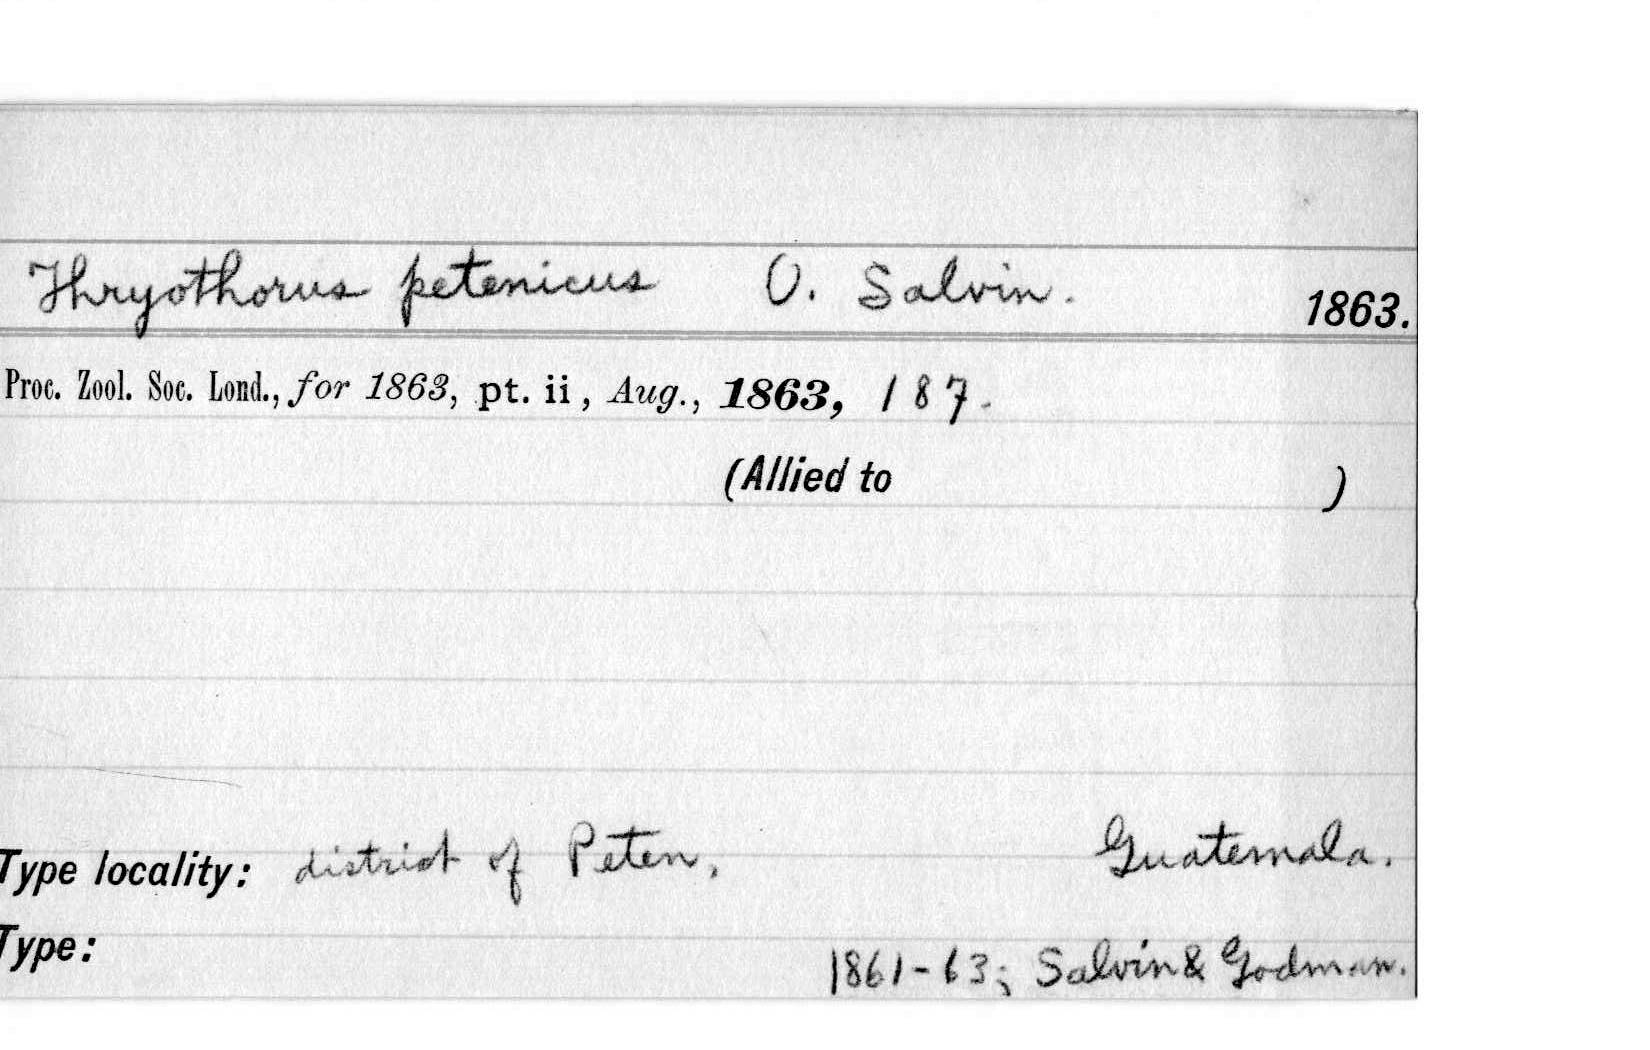 Thryothorus petenicus O. Salvin. 1863.
Proc. Zool. Soc. Lond., for 1863, pt. ii, Aug., 1863, 187.
(Allied to )
Type locality: district of Peten, Guatemala.
Type: 1861-63; Salvin & Godman.